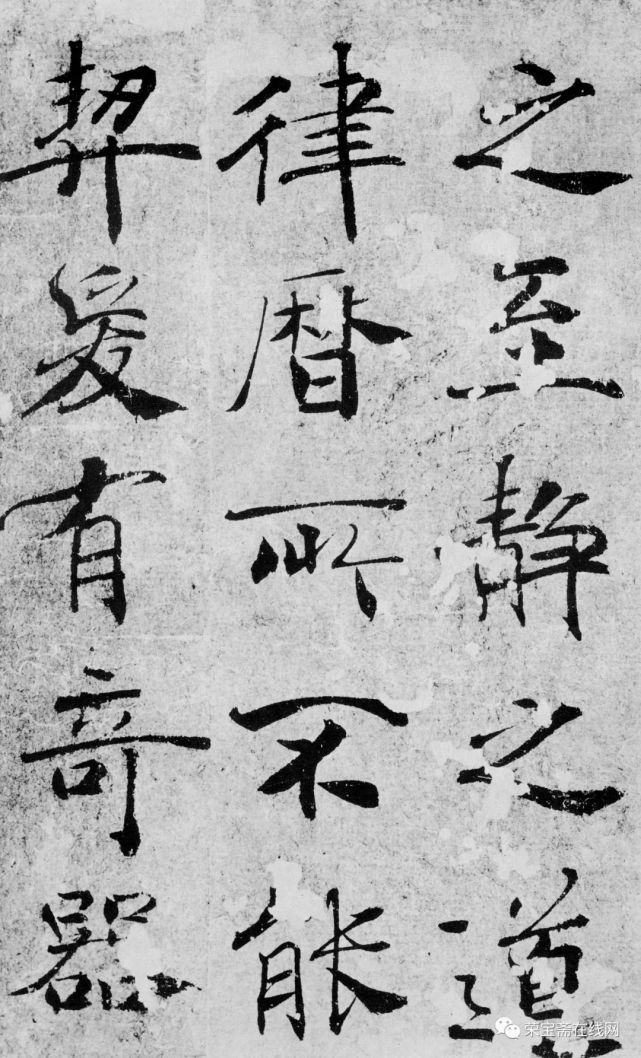 之至静之道
律暦所不能
契爰有奇器
荣宝斋在线网